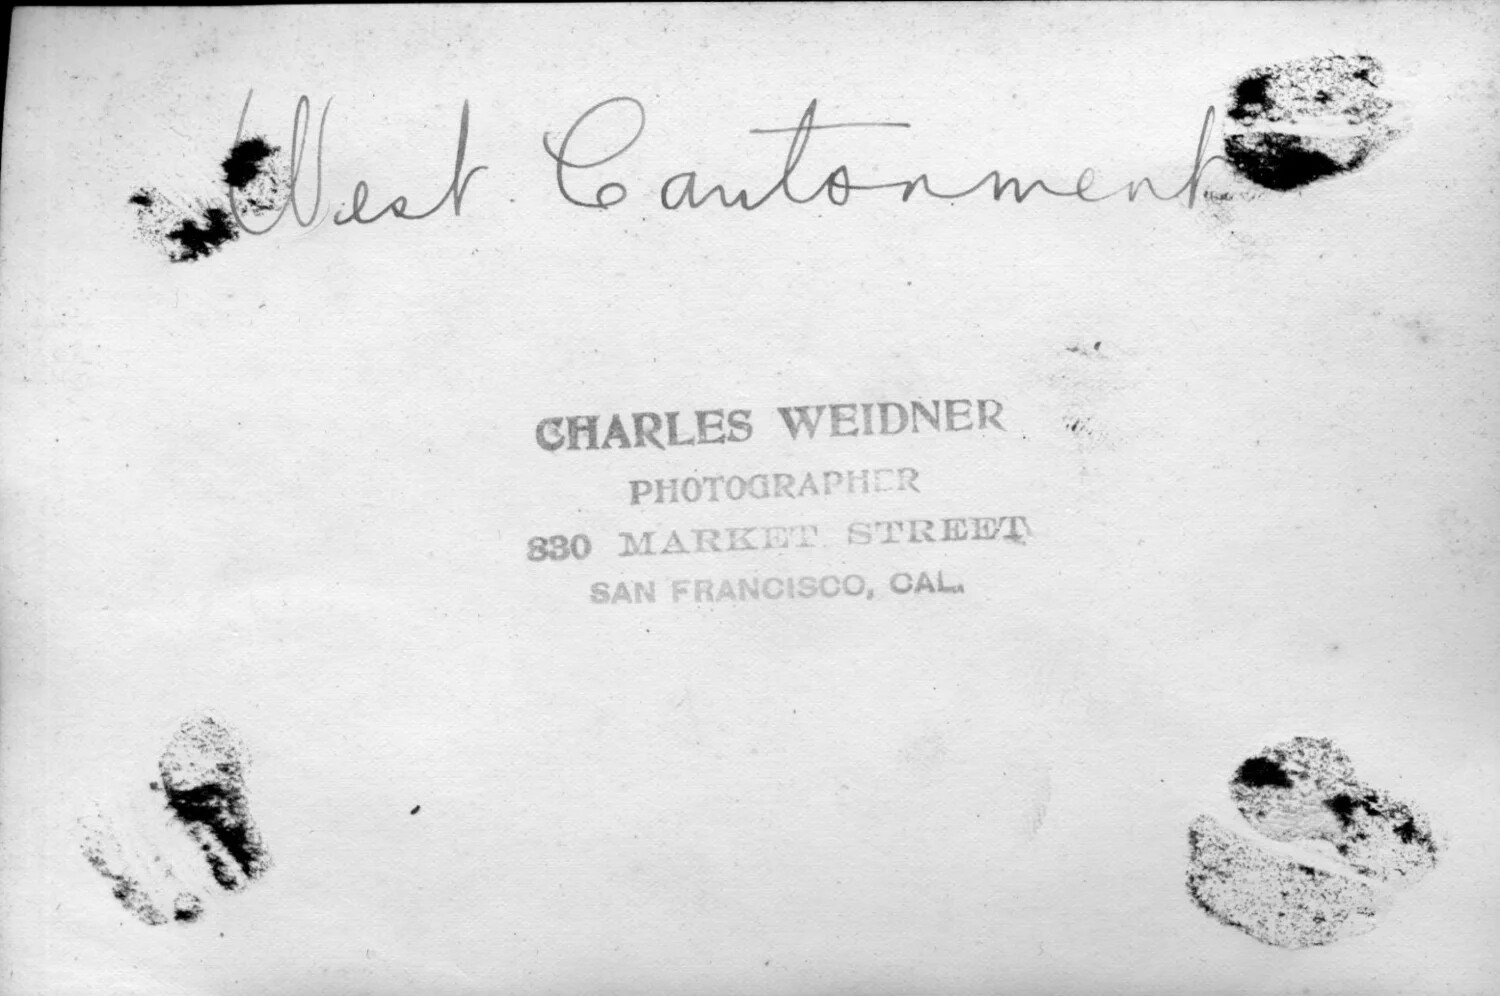 West Cantonment
CHARLES WEIDNER
PHOTOGRAPHER
830 MARKET STREET
SAN FRANCISCO, CAL.